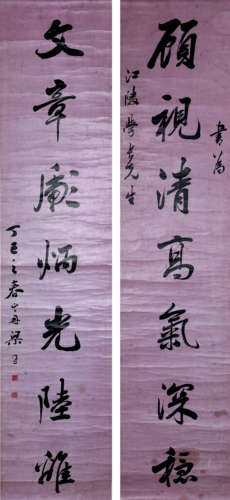 書為
顧視清高氣深穩
江陵學長先生
文章彪炳光陸離
丁巳之春